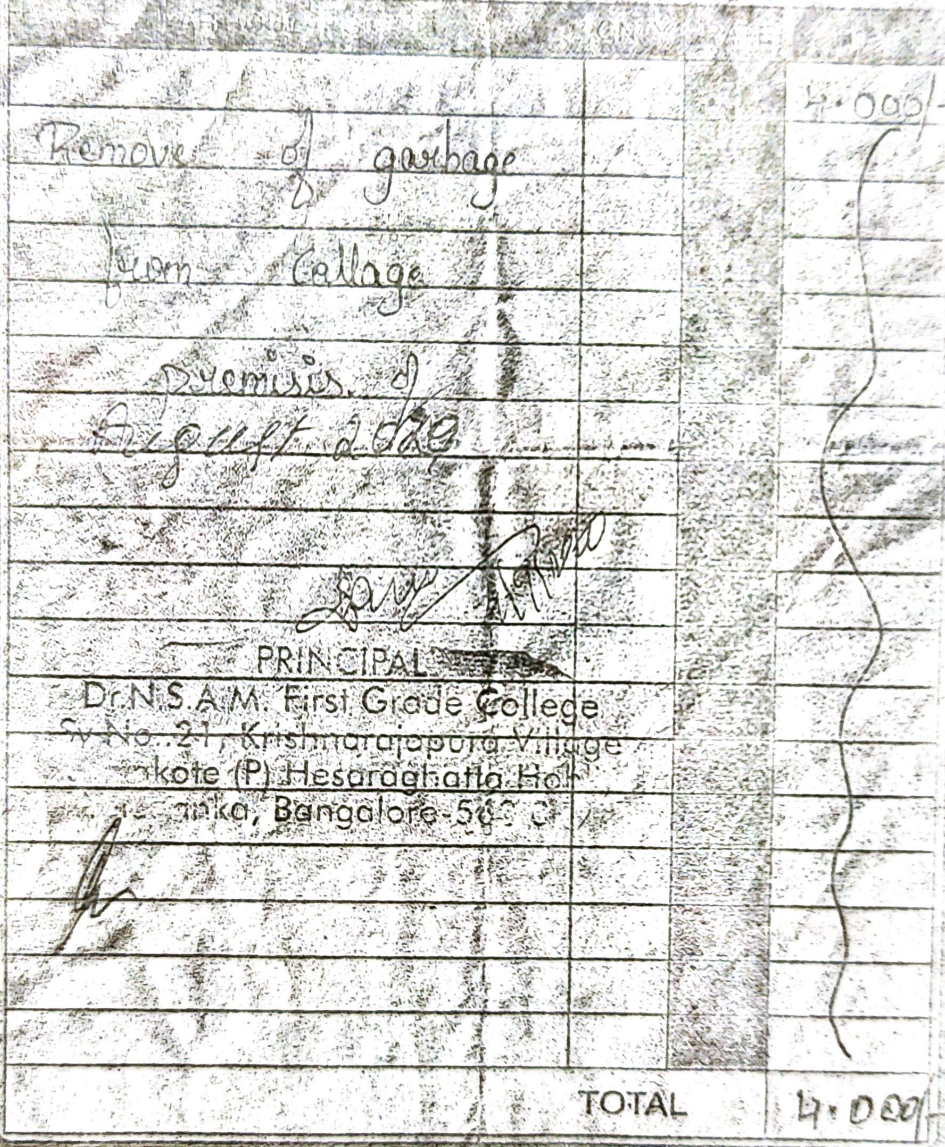 QNTY RATE
4.000/-
Remove of garbage
from Collage
premisis of
August 2020
PRINCIPAL
Dr.N.S.A.M. First Grade College
Sy No. 21, Krishnarajapura Village
kote (P) Hesaraghatta
Bangalore
TOTAL 4.000/-